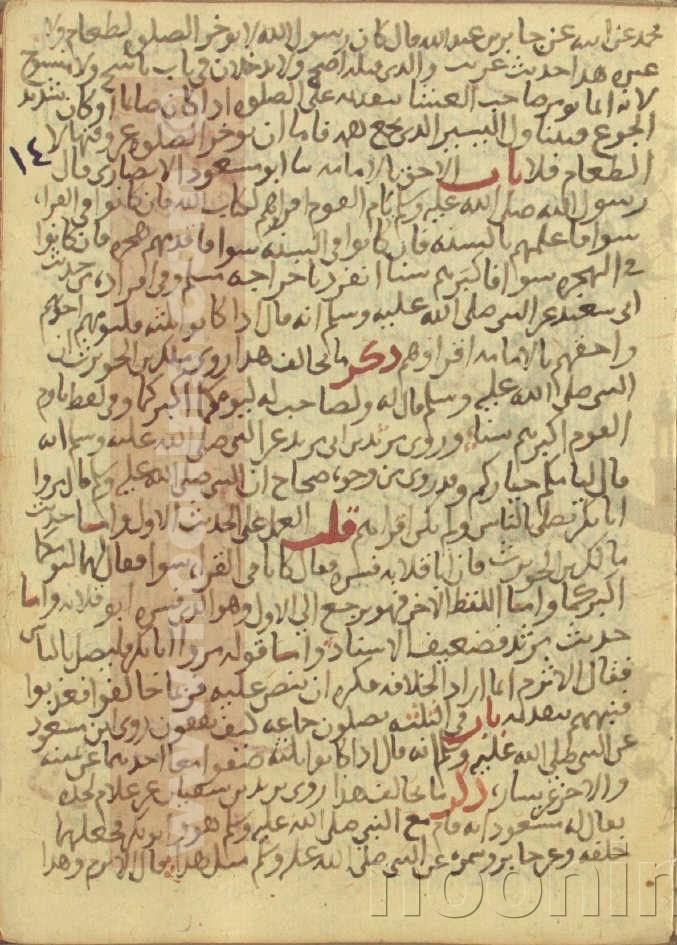 محمد عن ابيه عن جابر بن عبد الله قال كان رسول الله لا يوخر الصلوه لطعام ولا
غيره هذا حديث غريب والذي قبله اصح ولا يدخلان في باب ناسخ ولا منسوخ
لانه انما يومر صاحب العشا بتقديمه على الصلوه اذا كان صايما او كان شديد
الجوع فيتناول اليسير الذي مع فاما ان يوخر الصلوه عن وقتها لا
الطعام فلا باب الاحق بالامامه ثنا ابو مسعود الانصاري قال
رسول الله صلى الله عليه وسلم يام القوم اقراهم لكتاب الله فان كانوا في القراه
سوا فاعلمهم بالسنه فان كانوا في السنه سوا فاقدمهم هجره فان كانوا
في الهجره سوا فاكبرهم سنا انفرد باخراجه مسلم وفي افراده من حديث
ابي سعيد عن النبي صلى الله عليه وسلم انه قال اذا كانوا ثلثه فليومهم احدهم
واحقهم بالامامه اقراوهم ذكر ما يخالف هذا روى ملك بن الحويرث ان
النبي صلى الله عليه وسلم قال له ولصاحب له ليومكما اكبركما وفي لفظ ياوم
القوم اكبرهم سنا وروى مرثد بن ابي مرثد عن النبي صلى الله عليه وسلم انه
قال ليامكم خياركم وقد روى من وجوه صحاح ان النبي صلى الله عليه وسلم قال مروا
ابا بكر يصلي بالناس ولم يكن اقراهم قلت العمل على الحديث الاول واما حديث
مالك بن الحويرث فان ابا قلابه فسره فقال كانا في القراه سوا فقال لهما ليومكما
اكبركما واما اللفظ الاخر فهو يرجع الى الاول وهو الذي فسره ابو قلابه واما
حديث مرثد فضعيف الاسناد واما قوله مروا ابا بكر فليصل بالناس
فقال الاثرم انما اراد الخلافه فكره ان ينص عليه
فنبههم بتقديمه باب في الثلثه يصلون جماعه كيف يقفون روى ابن مسعود
عن النبي صلى الله عليه وسلم انه قال اذا كانوا ثلثه صفوا معا احدهما عن يمينه
والاخر عن يساره ذكر ما يخالف هذا روى بريد بن سفيان عن غلام لجده
يقال له مسعود انه قام مع النبي صلى الله عليه وسلم هو وابو بكر فجعلهما
خلفه وعن جابر وسمره عن النبي صلى الله عليه وسلم مثل هذا قال الاثرم وهذا
١٤
noonin